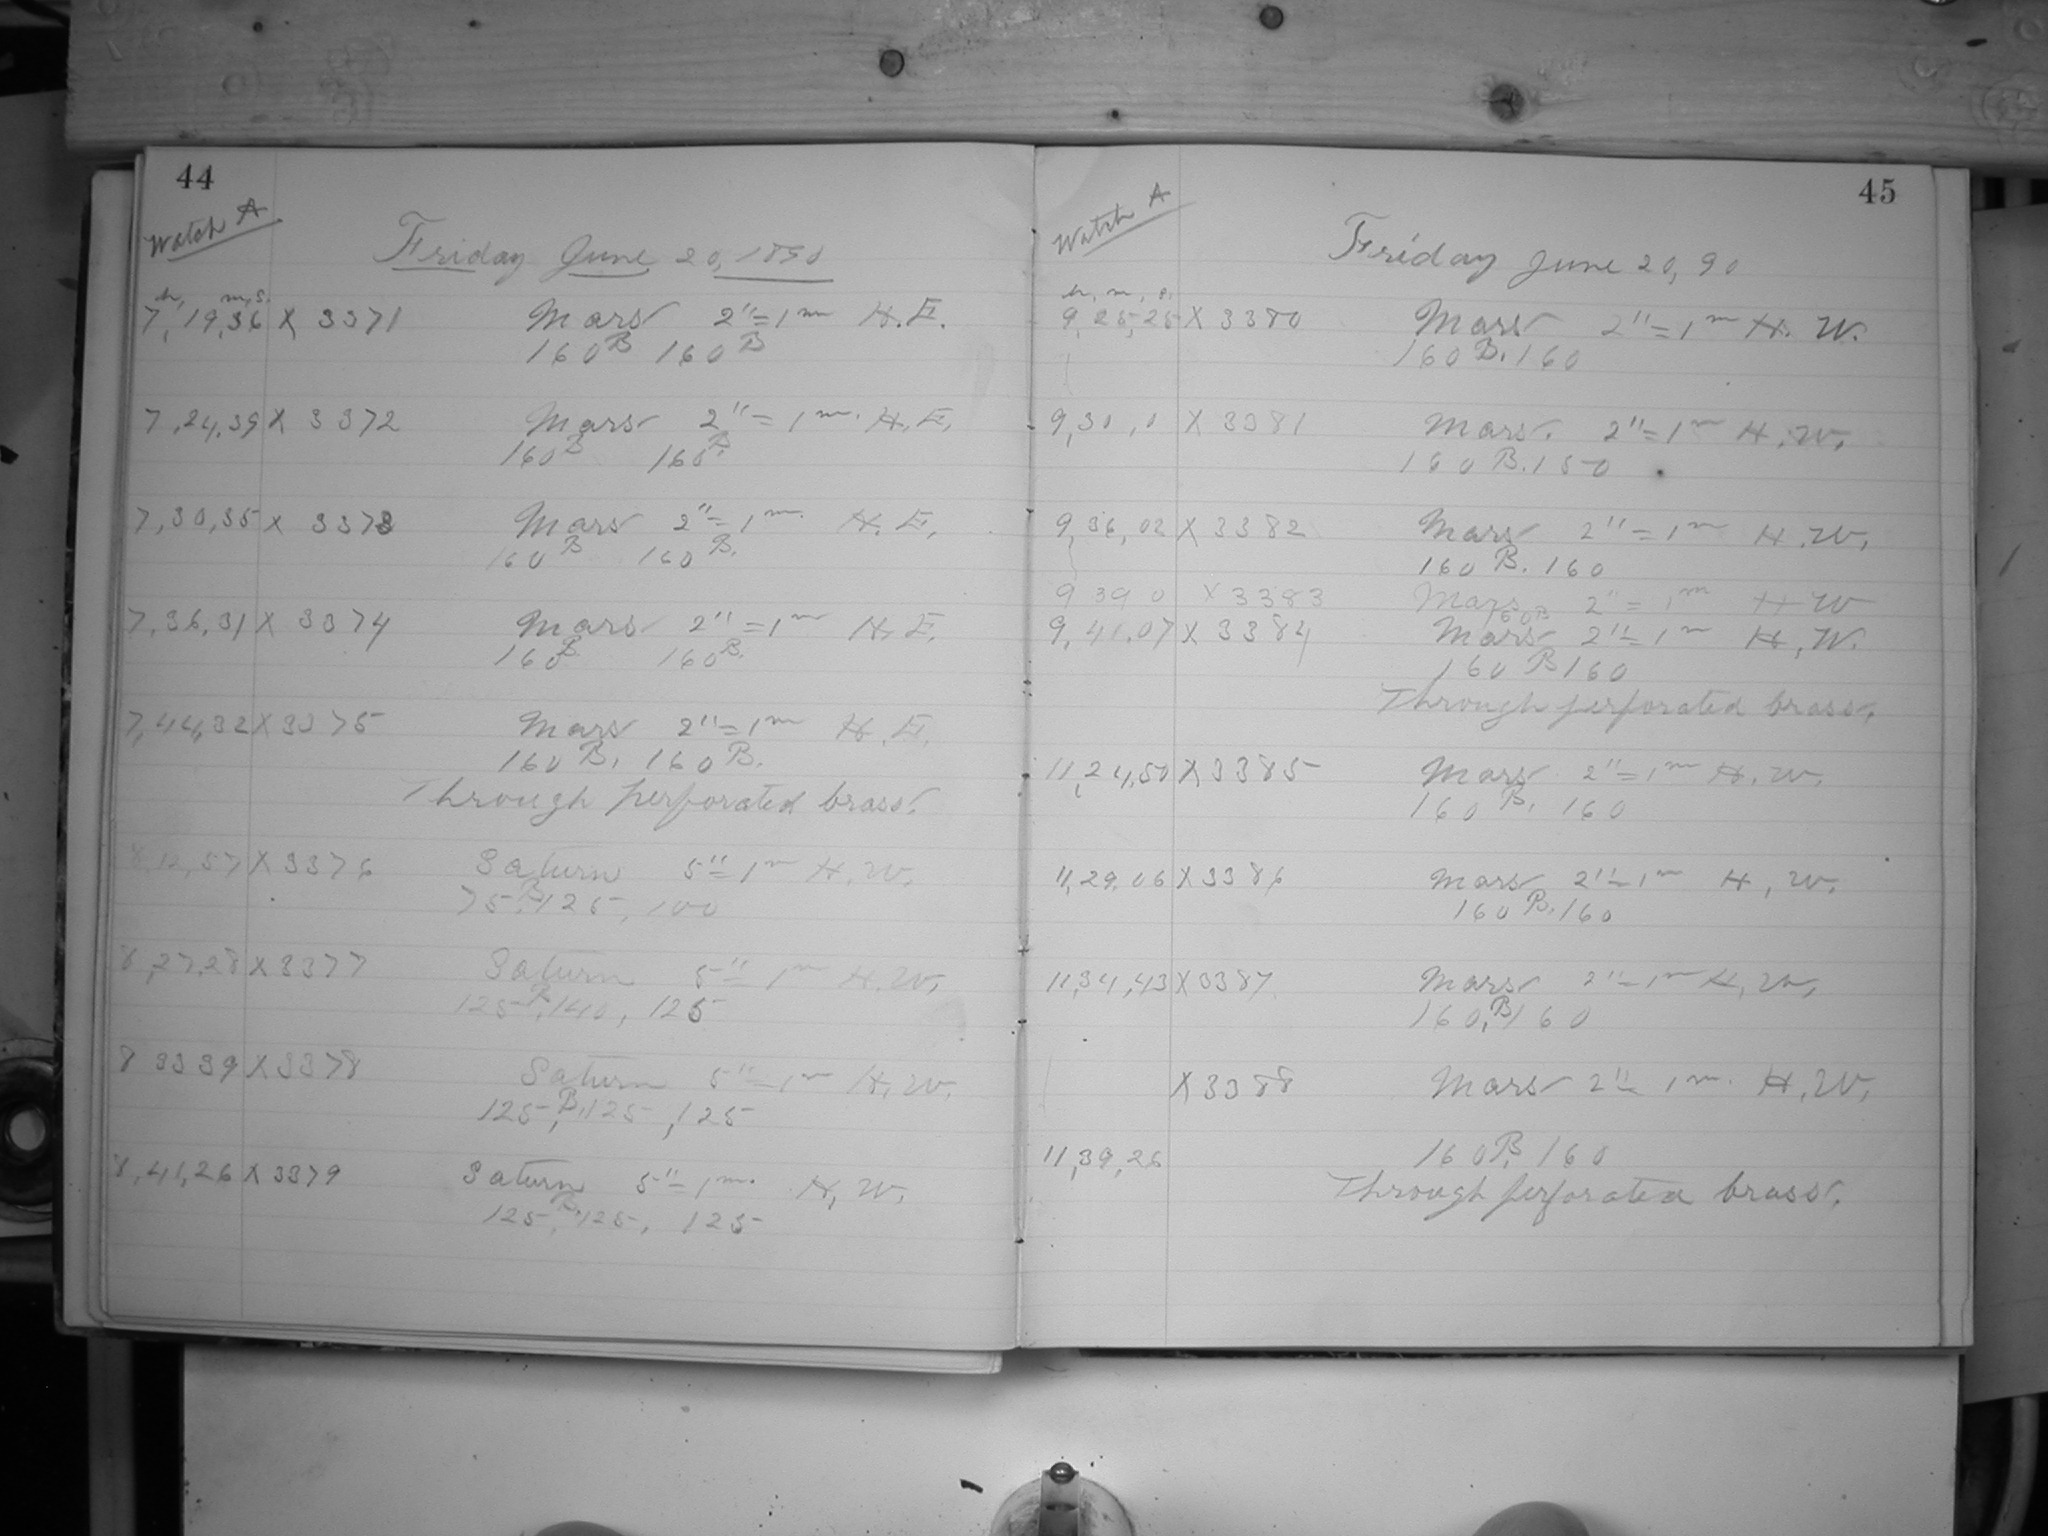 44
Watch A
Friday June 20, 1890
h, m, s.
7, 19, 36 X 3371 Mars 2"=1m H.E.
160B 160B
7,24,39 X 3372 Mars 2"=1m. H.E.
160B 160B.
7,30,35 X 3373 Mars 2"=1m. H.E.
160B 160B.
7,36,31 X 3374 Mars 2"=1m H.E.
160B 160B.
7,44,32 X 3375 Mars 2"=1m H.E.
160B, 160B.
Through perforated brass.
8,12,57 X 3376 Saturn 5"=1m H.W.
75,B.125, 100
8,27,28 X 3377 Saturn 5"=1m H.W.
125,B.140, 125
8 33 39 X 3378 Saturn 5"=1m H.W.
125,B.125, 125
8,41,26 X 3379 Saturn 5"=1m. H.W.
125,B.125, 125
45
Watch A
Friday June 20, 90
h, m, s.
9,25,25 X 3380 Mars 2"=1m H.W.
160B.160
9,30,0 X 3381 Mars. 2"=1m H.W.
160B.150
9,36,02 X 3382 Mars 2"=1m H.W.
160B.160
9 39 0 X 3383 Mars 2"=1m H W
160B
9,41,07 X 3384 Mars 2"=1m H.W.
160B160
Through perforated brass.
11,24,50 X 3385 Mars 2"=1m H.W.
160B. 160
11,29,06 X 3386 Mars 2"=1m H.W.
160B.160
11,34,43 X 3387 Mars 2"=1m H.W.
160,B160
X 3388 Mars 2"= 1m. H.W.
11,39,26 160B 160
Through perforated brass.